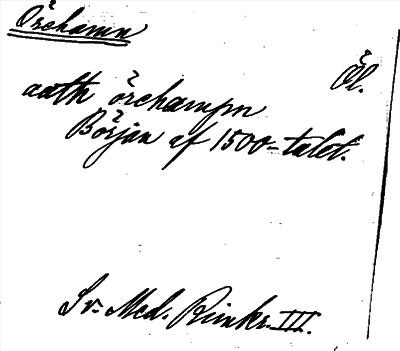 Örchamn
Öl.
aath örchampn
Början af 1500-talet.
Sv. Med. Rimkr. III.